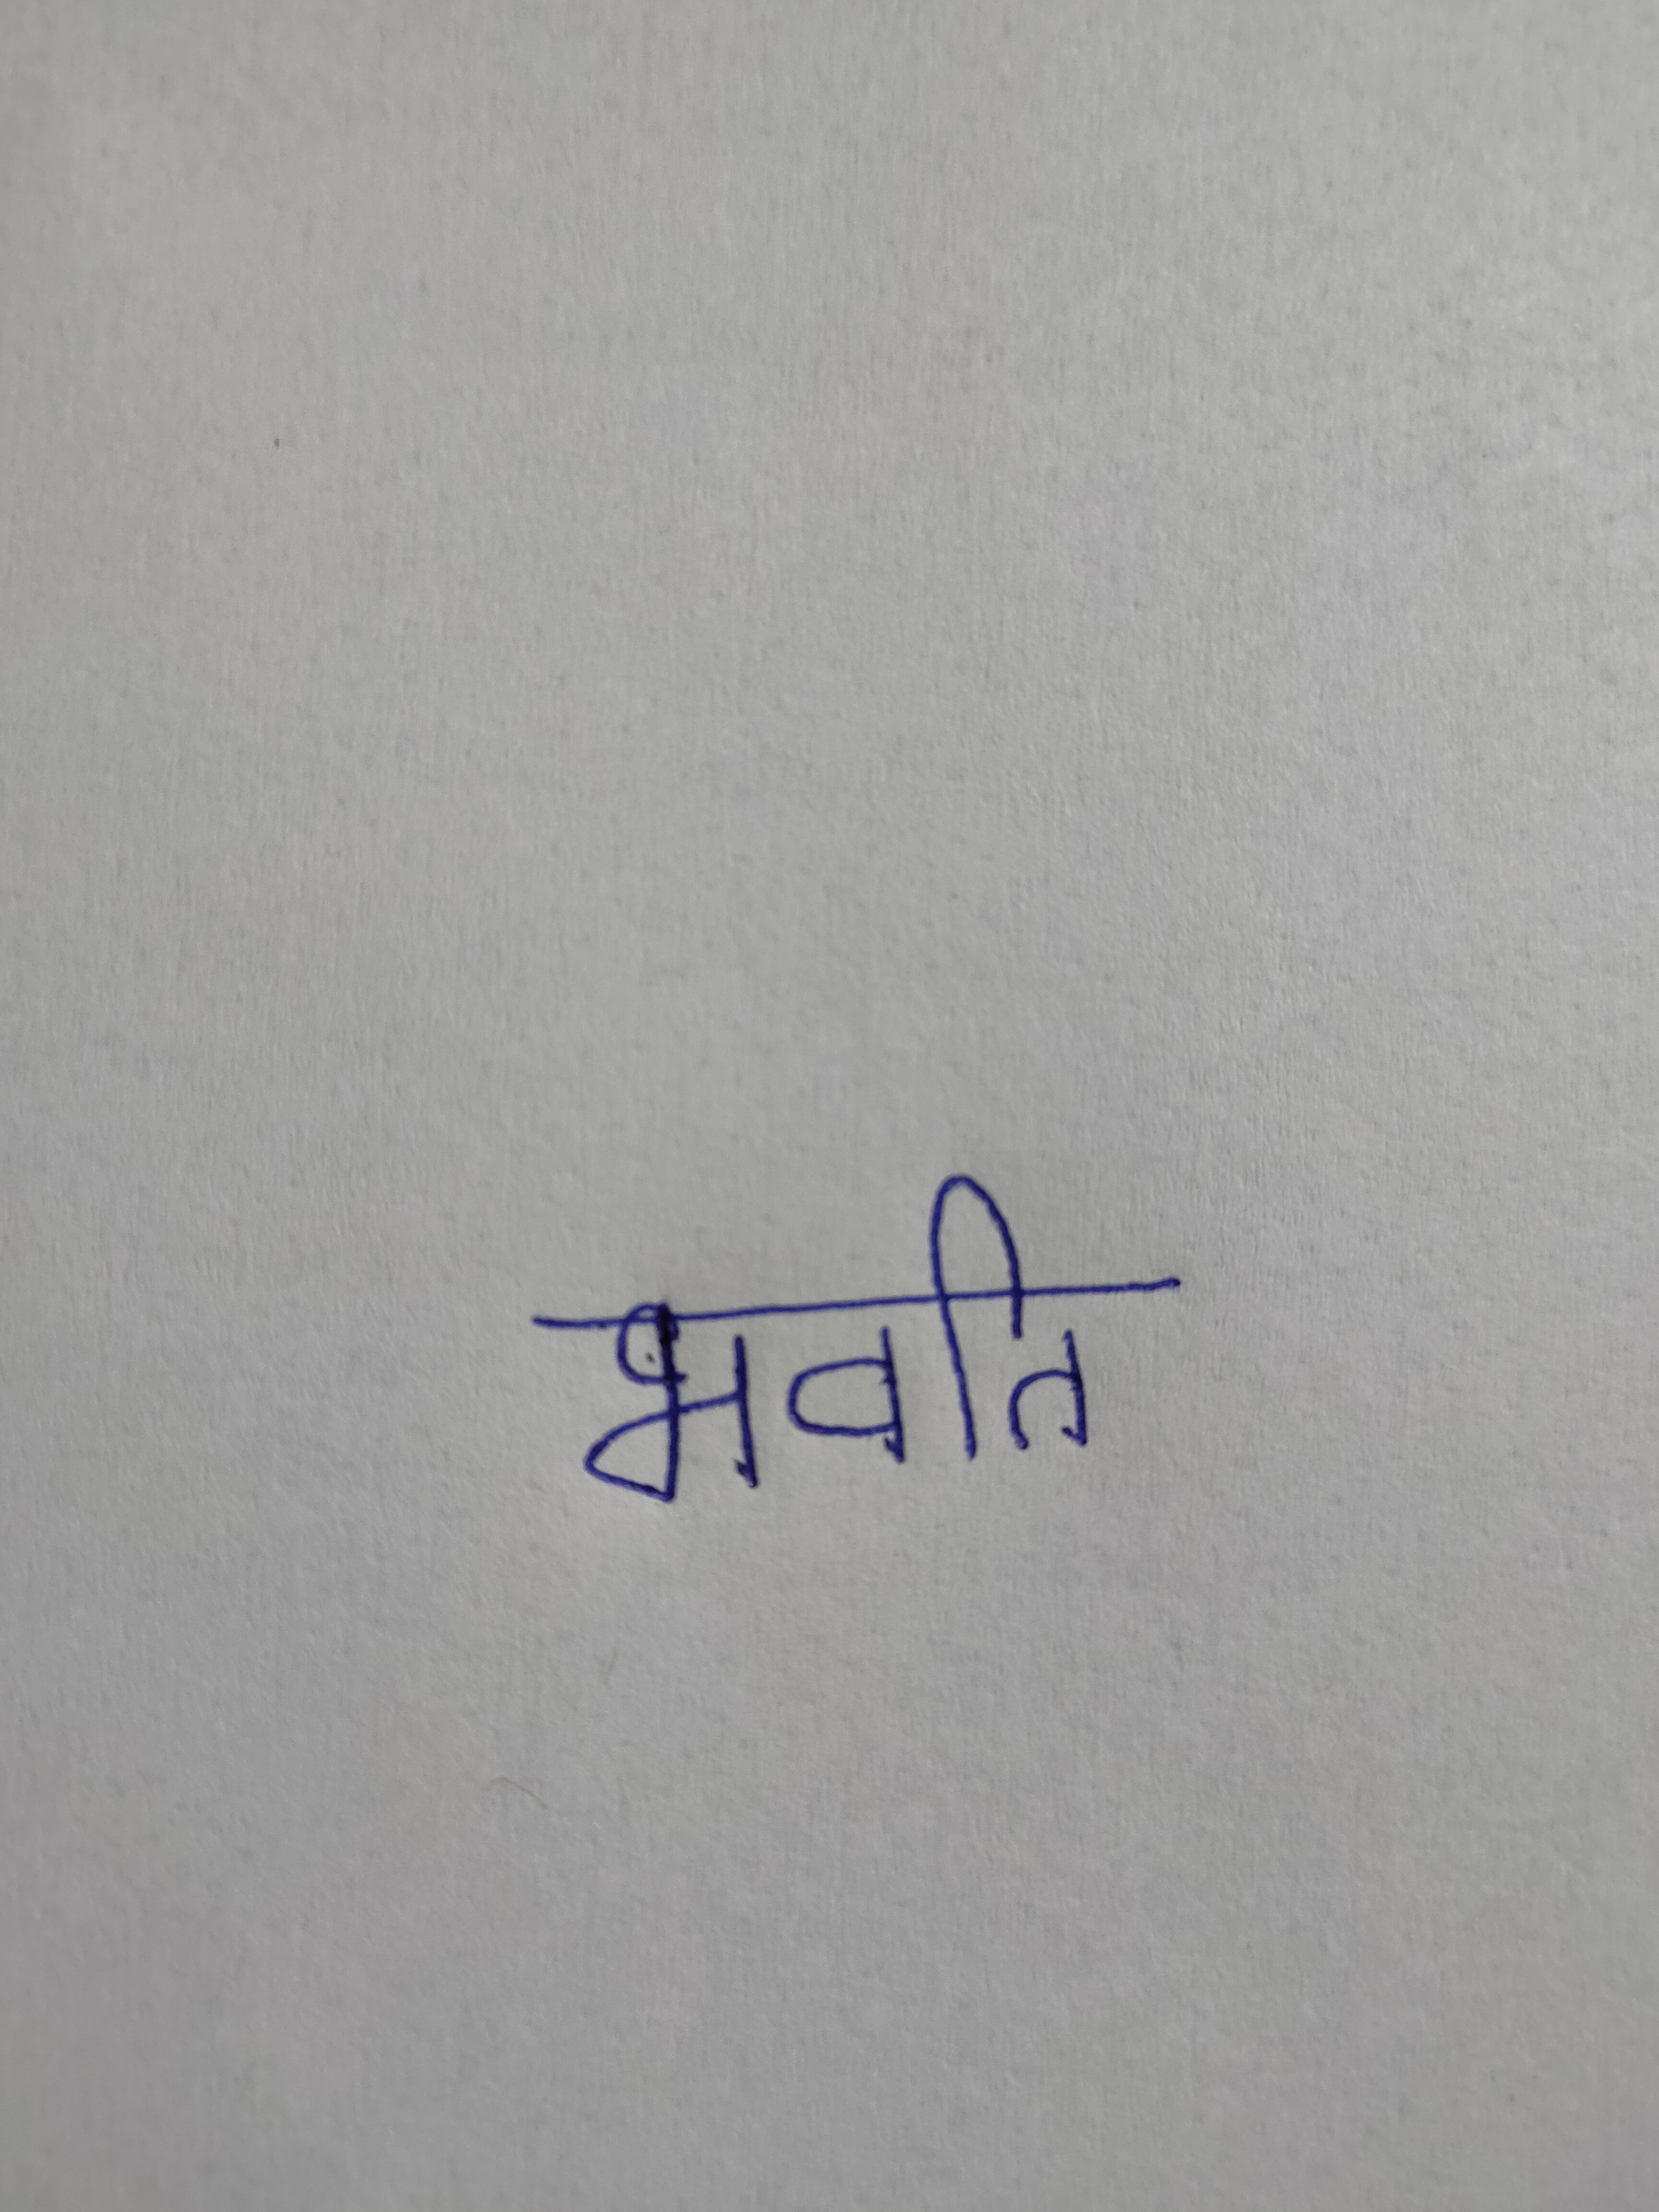 भवति